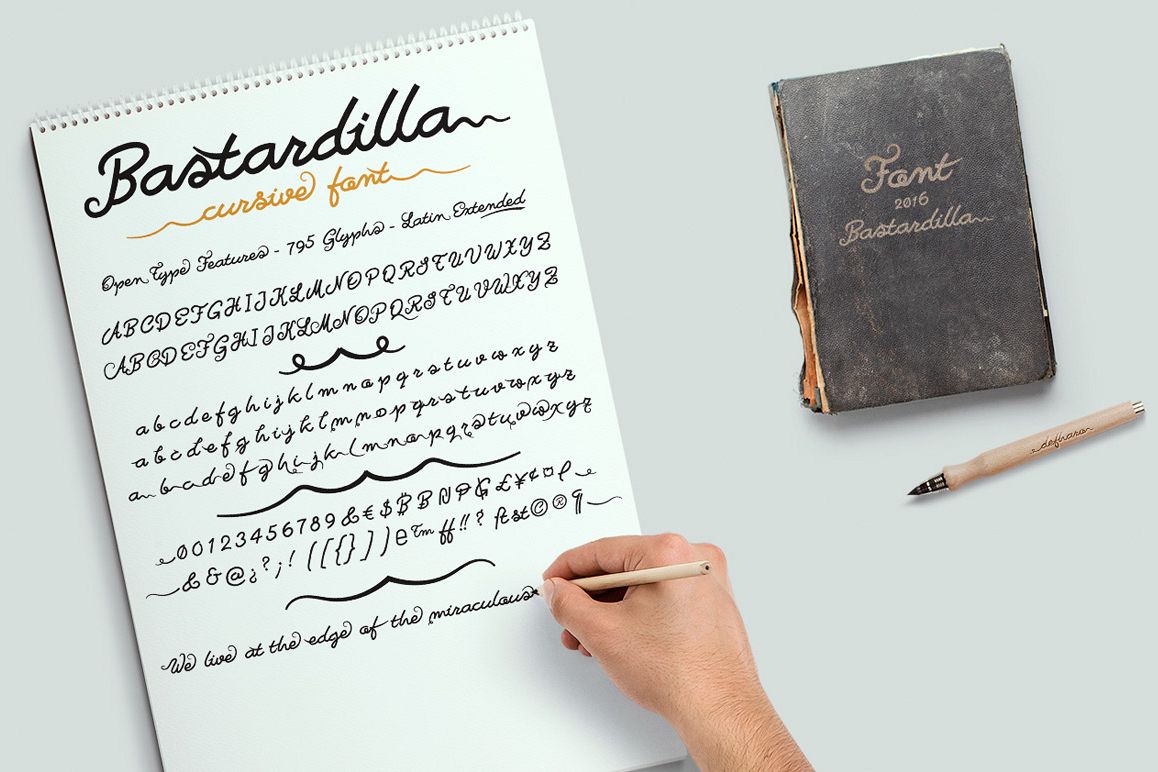 Bastardilla
cursive font
Open Type Features - 795 Glyphs - Latin Extended
ABCDEFGHIJKLMNOPQRSTUVWXYZ
ABCDEFGHIJKLMNOPQRSTUVWXYZ
abcdefghijklmnopqrstuvwxyz
abcdefghijklmnopqrstuvwxyz
abcdefghijklmnopqrstuvwxyz
00123456789&€$
£¥¢¤
&&@¿?¡!([{}])
™ff!!? ſtst©®¶
We live at the edge of the miraculous
Font
2016
Bastardilla
defharo